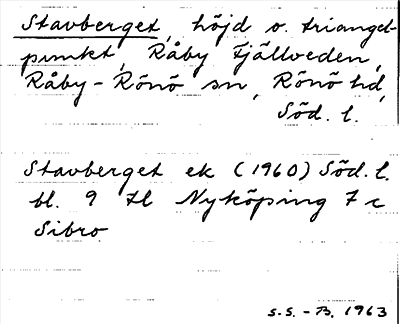 Stavberget, höjd o. triangel-
punkt, Råby Fjällveden,
Råby-Rönö sn, Rönö hd,
Söd. l.
Stavberget ek (1960) Söd. l.
bl. 9 tl Nyköping 7 c
Sibro
S.S.-B. 1963